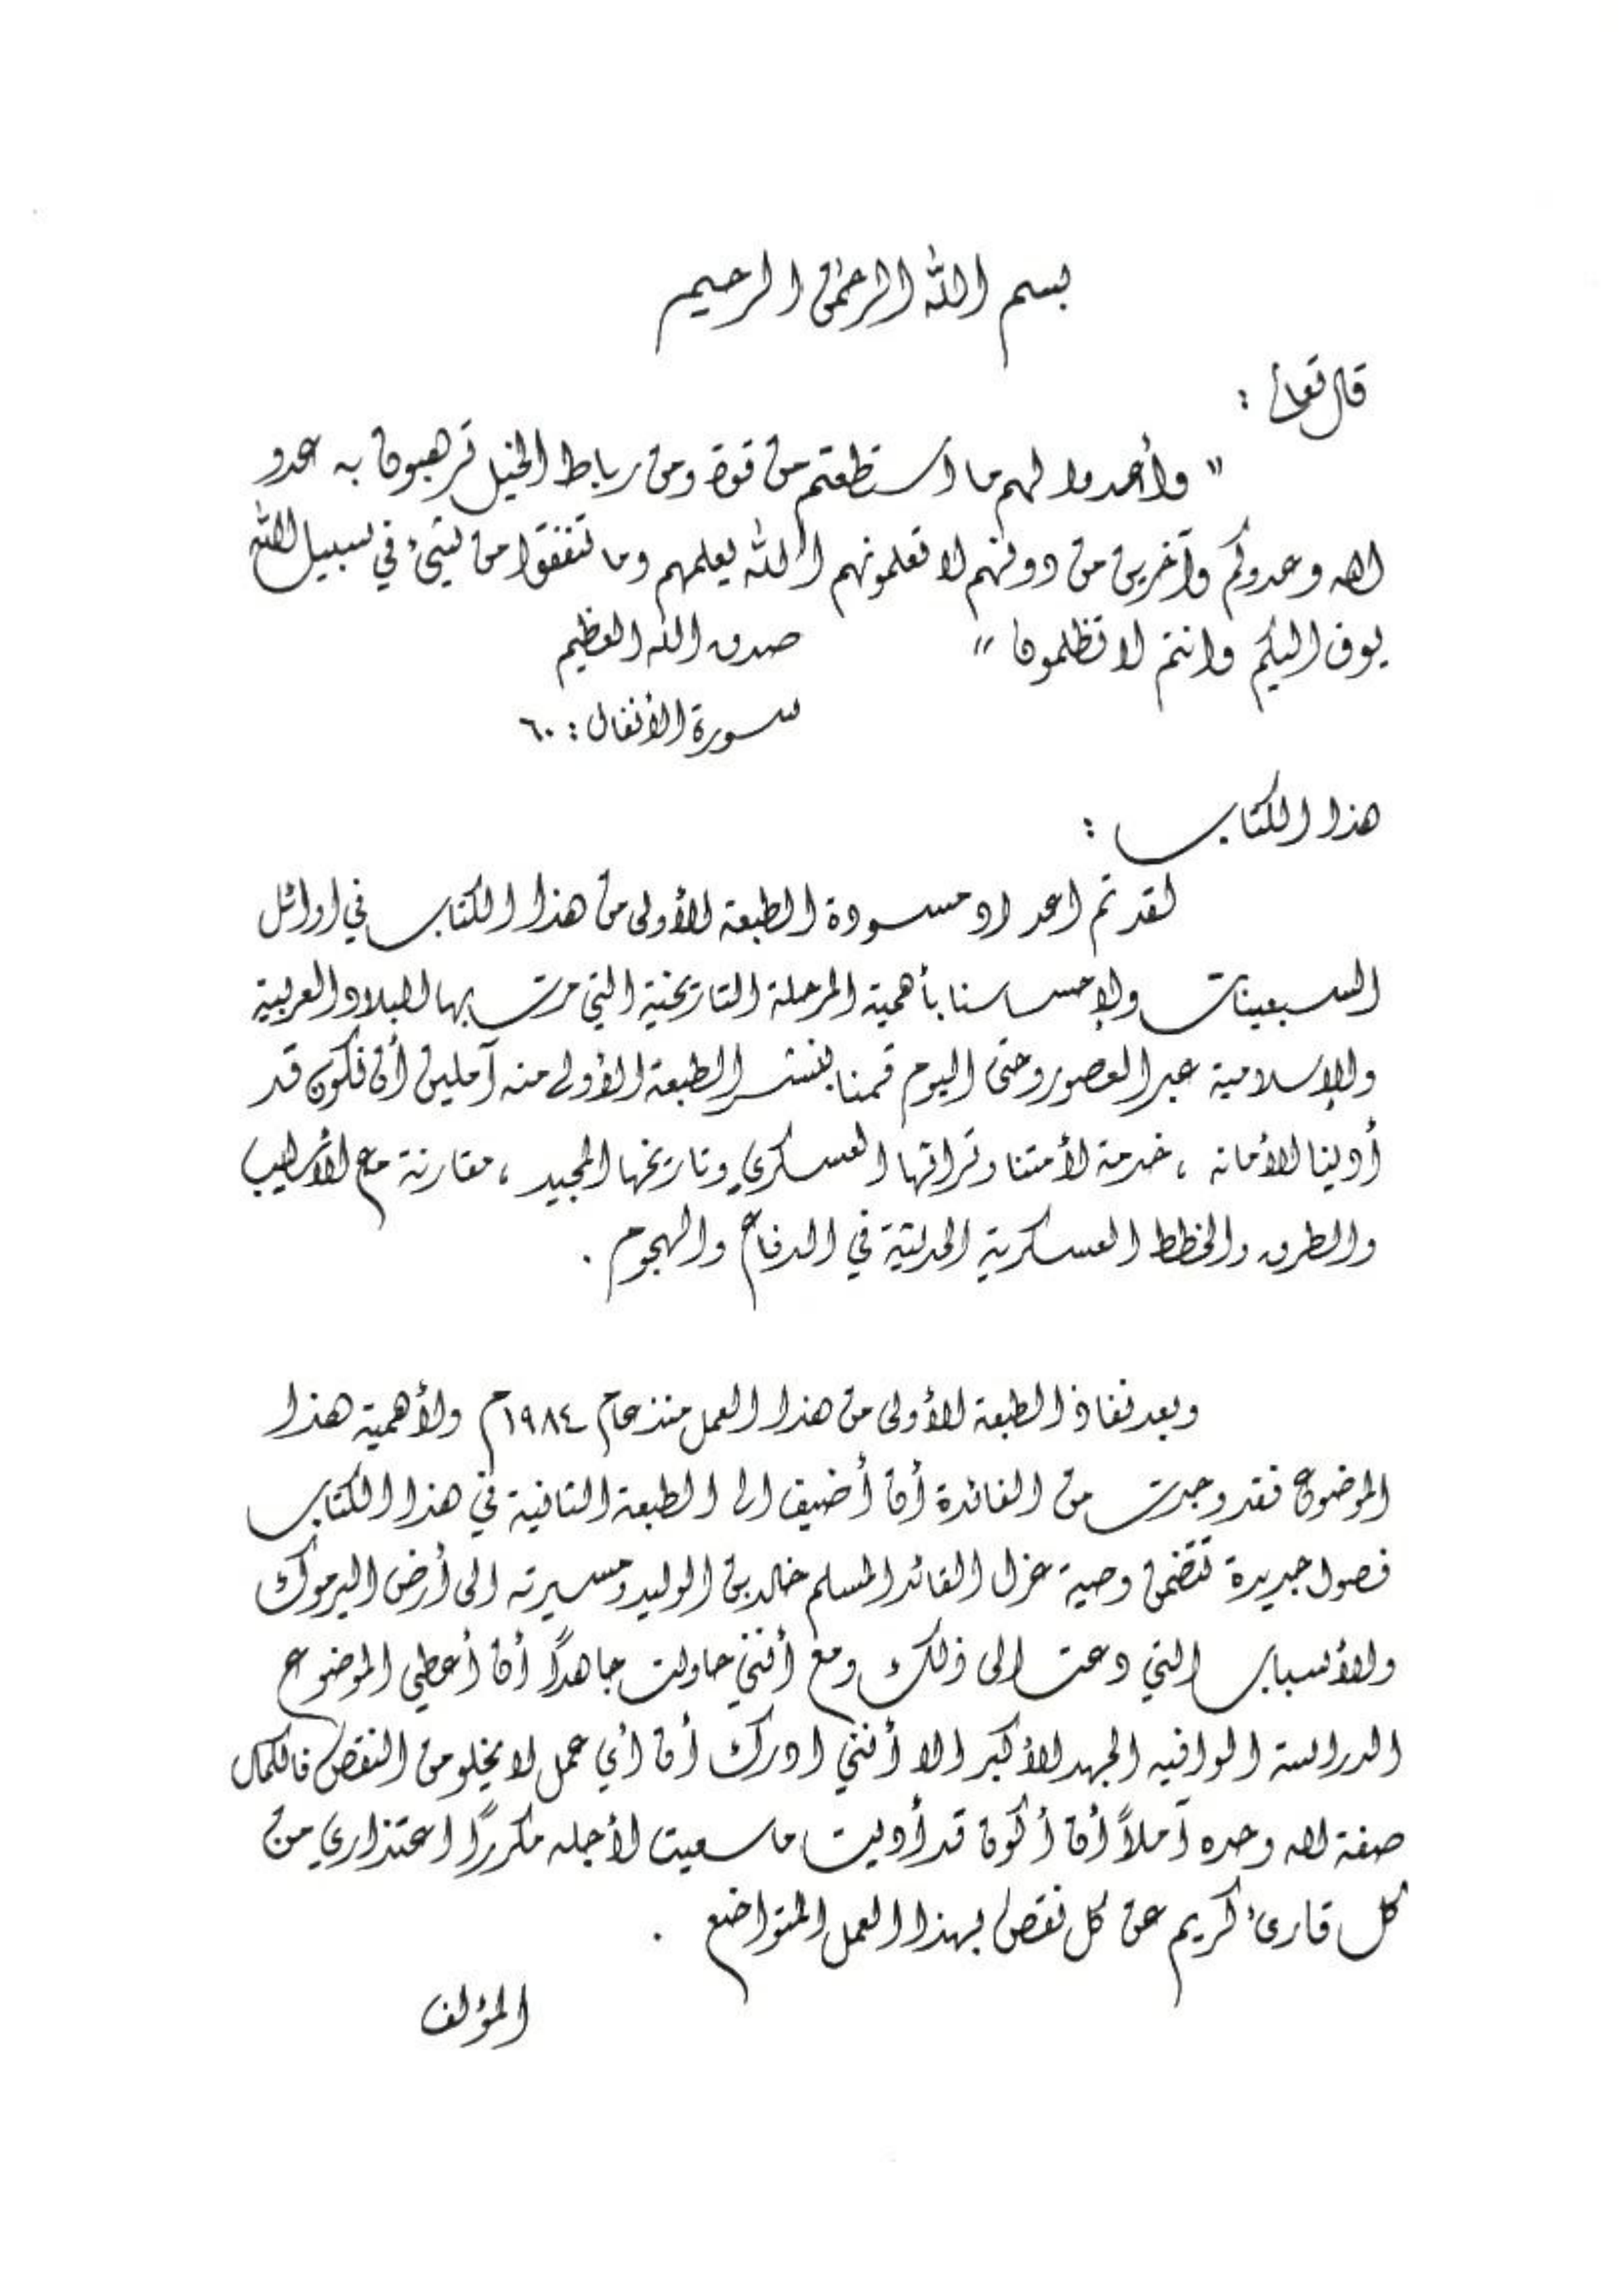 بسم الله الرحمن الرحيم
قال تعالى :
" وأعدوا لهم ما استطعتم من قوة ومن رباط الخيل ترهبون به عدو
الله وعدوكم وآخرين من دونهم لا تعلمونهم الله يعلمهم وما تنفقوا من شيء في سبيل الله
يوف اليكم وانتم لا تظلمون " صدق الله العظيم
سورة الأنفال : ٦٠
هذا الكتاب :
لقد تم اعداد مسودة الطبعة الأولى من هذا الكتاب في اوائل
السبعينات ولإحساسنا بأهمية المرحلة التاريخية التي مرت بها البلاد العربية
والإسلامية عبر العصور وحتى اليوم قمنا بنشر الطبعة الأولى منه آملين أن نكون قد
أدينا الأمانه ، خدمة لأمتنا وتراثها العسكري وتاريخها المجيد ، مقارنة مع الأساليب
والطرق والخطط العسكرية الحديثة في الدفاع والهجوم .
وبعد نفاذ الطبعة الأولى من هذا العمل منذ عام ١٩٨٤م ولأهمية هذا
الموضوع فقد وجدت من الفائدة أن أضيف الى الطبعة الثانية في هذا الكتاب
فصول جديدة تتضمن وصية عزل القائد المسلم خالد بن الوليد ومسيرته الى أرض اليرموك
والأسباب التي دعت الى ذلك ومع أنني حاولت جاهداً أن أعطي الموضوع
الدراسة الوافيه الجهد الأكبر الا أنني ادرك أن أي عمل لا يخلو من النقص فالكمال
صفة لله وحده آملاً أن أكون قد أديت ما سعيت لأجله مكرراً اعتذاري من
كل قارئ كريم عن كل نقص بهذا العمل المتواضع .
المؤلف